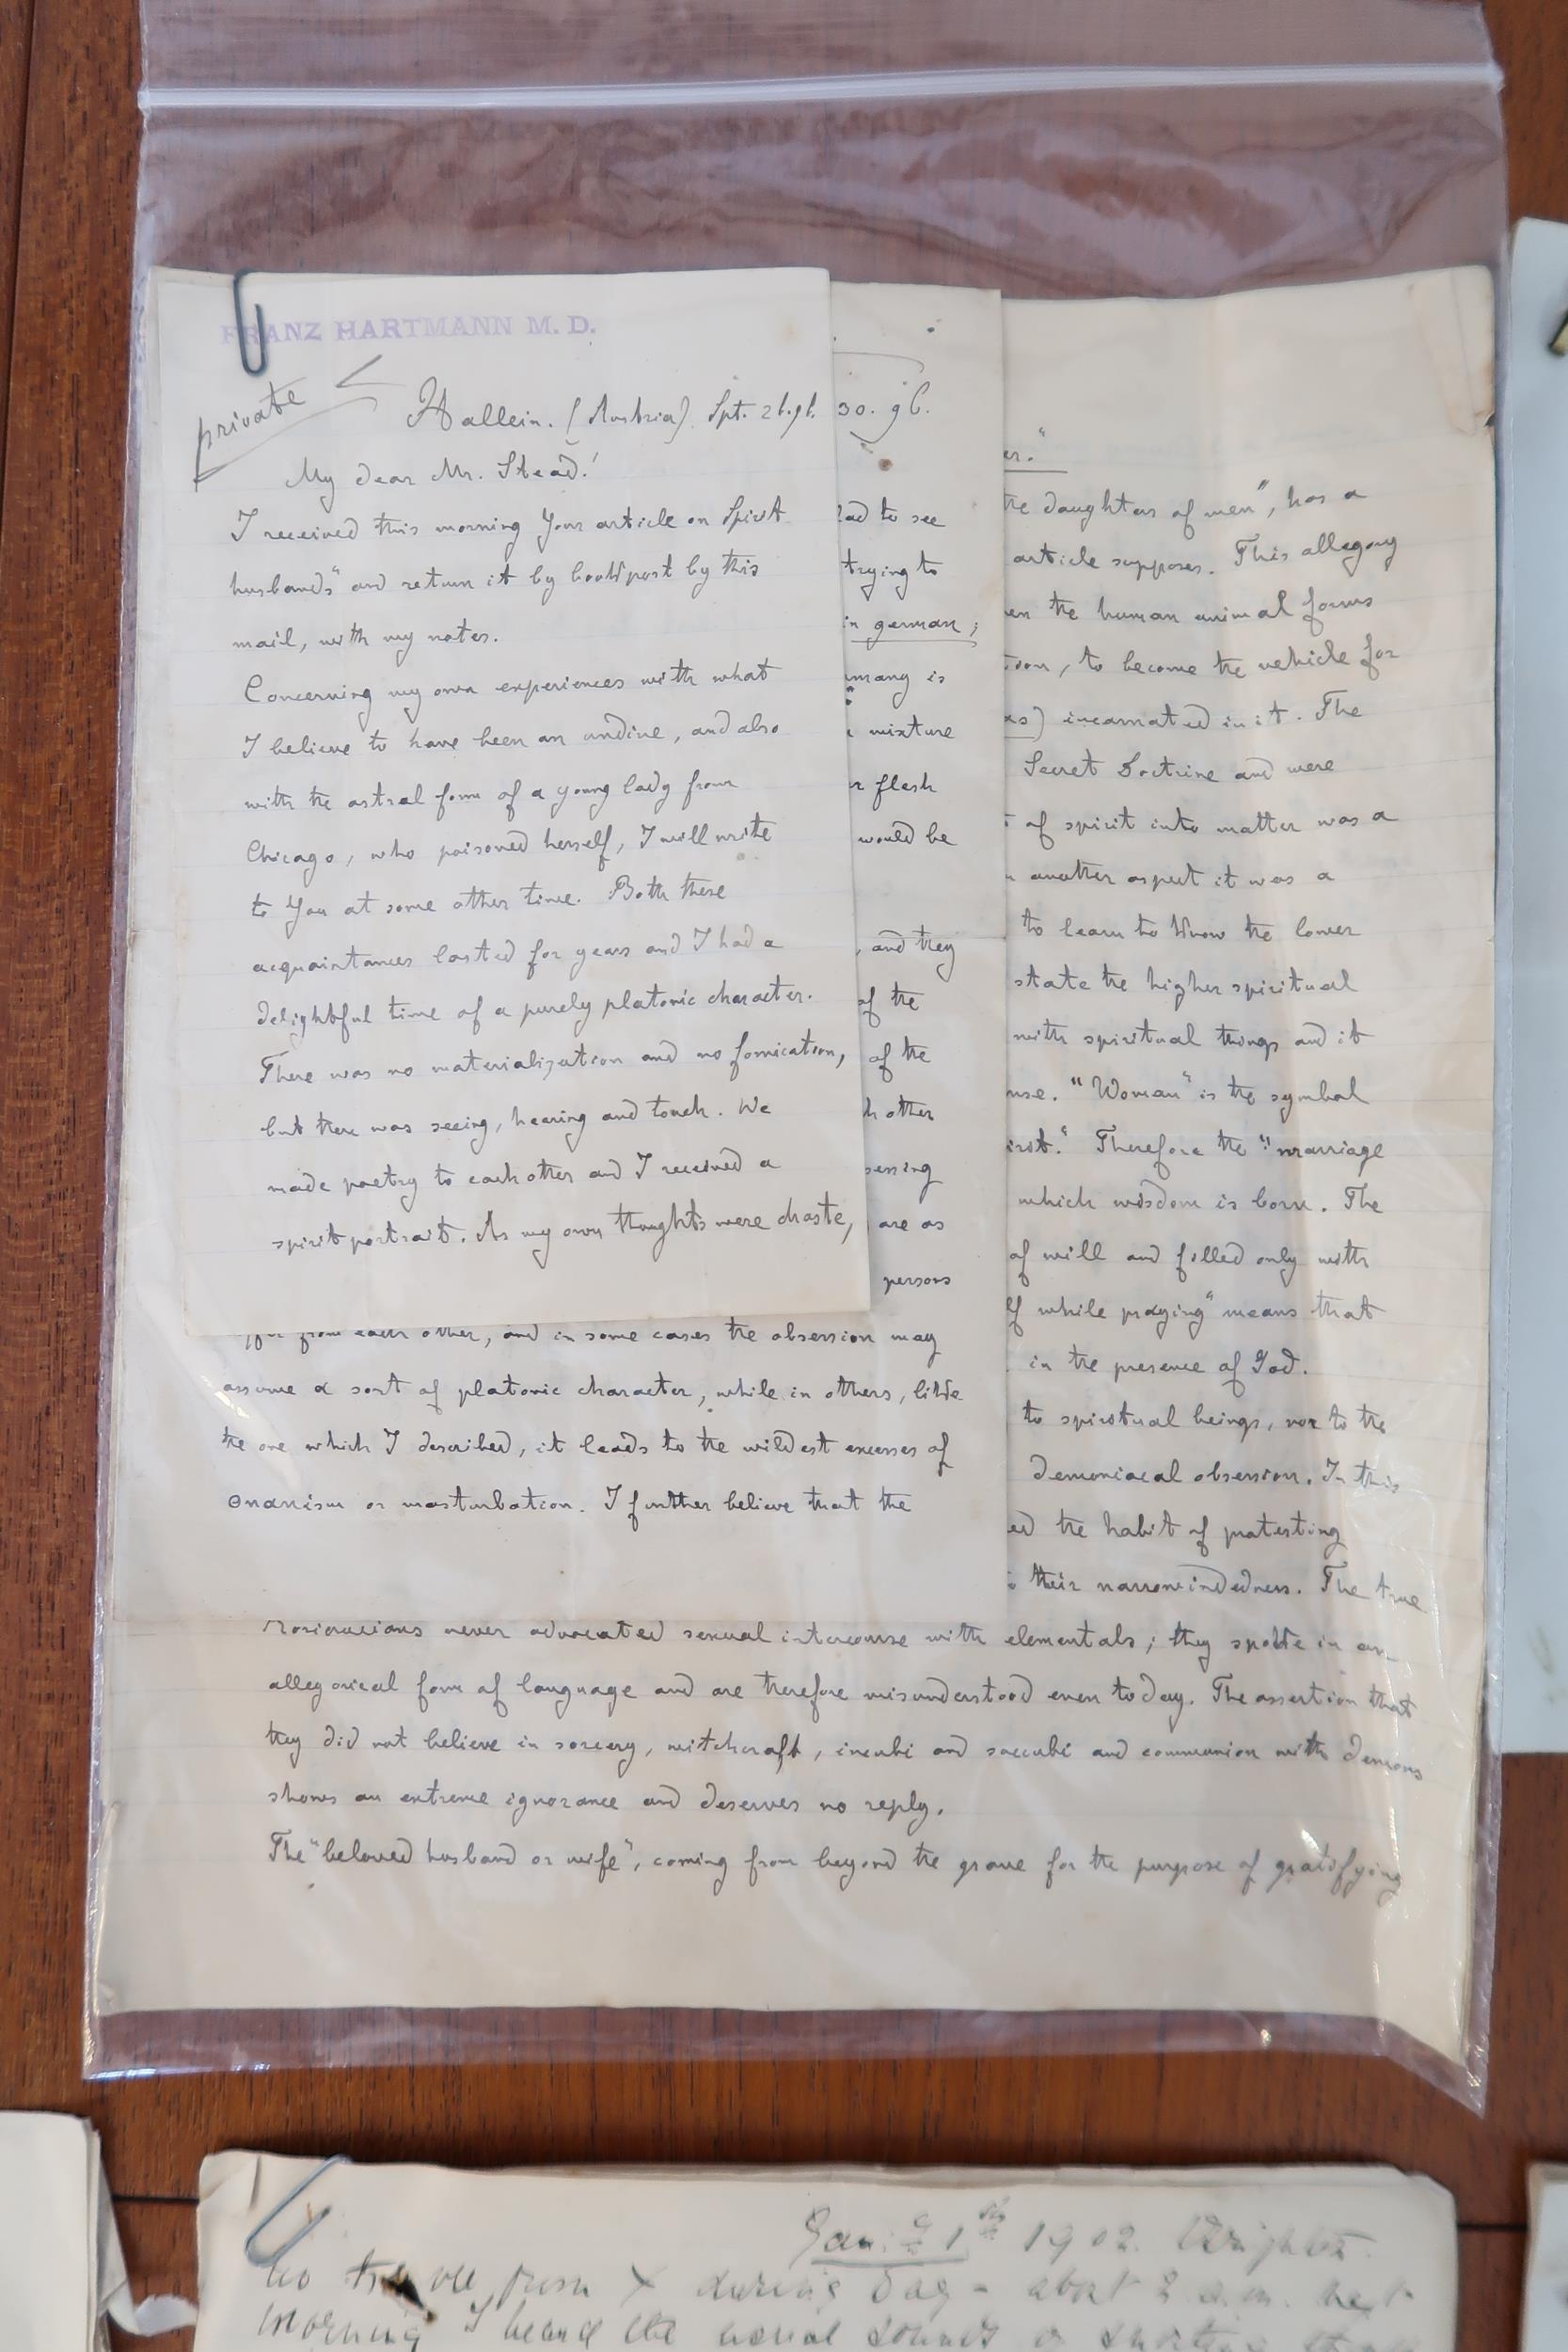 FRANZ HARTMANN M. D.
private
Hallein. (Austria). Spt. 26.96.
My dear Mr. Stead!
I received this morning Your article on Spirit
husbands" and return it by bookpost by this
mail, with my notes.
Concerning my own experiences with what
I believe to have been an undine, and also
with the astral form of a young lady from
Chicago, who poisoned herself, I will write
to You at some other time. Both these
acquaintances lasted for years and I had a
delightful time of a purely platonic character.
There was no materialization and no fornication,
but there was seeing, hearing and touch. We
made poetry to each other and I received a
spirit portrait. As my own thoughts were chaste,
30. 96.
lad to see
trying to
in german;
many is
mixture
r flesh
would be
, and they
of the
of the
h other
sessing
are as
persons
from each other, and in some cases the obsession may
assume a sort of platonic character, while in others, like
the one which I described, it leads to the wildest excesses of
onanism or masturbation. I further believe that the
er."
the daughters of men", has a
article supposes. This allegory
en the human animal forms
tion, to become the vehicle for
as) incarnated in it. The
Secret Doctrine and were
of spirit into matter was a
another aspect it was a
to learn to know the lower
state the higher spiritual
with spiritual things and it
nse. "Woman" is the symbol
irst." Therefore the "marriage
which wisdom is born. The
of will and filled only with
lf while praying" means that
in the presence of God.
to spiritual beings, nor to the
demoniacal obsession. In this
ed the habit of protesting
their narrowmindedness. The true
Rosicrucians never advocated sexual intercourse with elementals; they spoke in an
allegorical form of language and are therefore misunderstood even today. The assertion that
they did not believe in sorcery, witchcraft, incubi and succubi and communion with demons
shows an extreme ignorance and deserves no reply.
The "beloved husband or wife", coming from beyond the grave for the purpose of gratifying
1902. Brighton
from X during day – abot 2 a.m. next
morning I heard the usual sounds